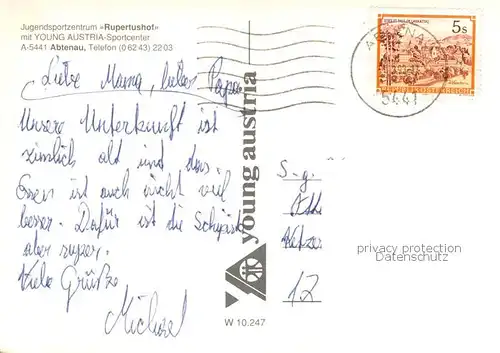 Jugendsportzentrum »Rupertushof«
mit YOUNG AUSTRIA-Sportcenter
A-5441 Abtenau, Telefon (0 62 43) 22 03
5 s
REPUBLIK ÖSTERREICH
ABTENAU
5441
Liebe Mama, lieber Papa
Unsere Unterkunft ist
ziemlich alt und das
Essen ist auch nicht viel
besser. Dafür ist die Schipiste
aber super.
Viele Grüße
Michael
young austria
S.g.
12
privacy protection
Datenschutz
W 10.247